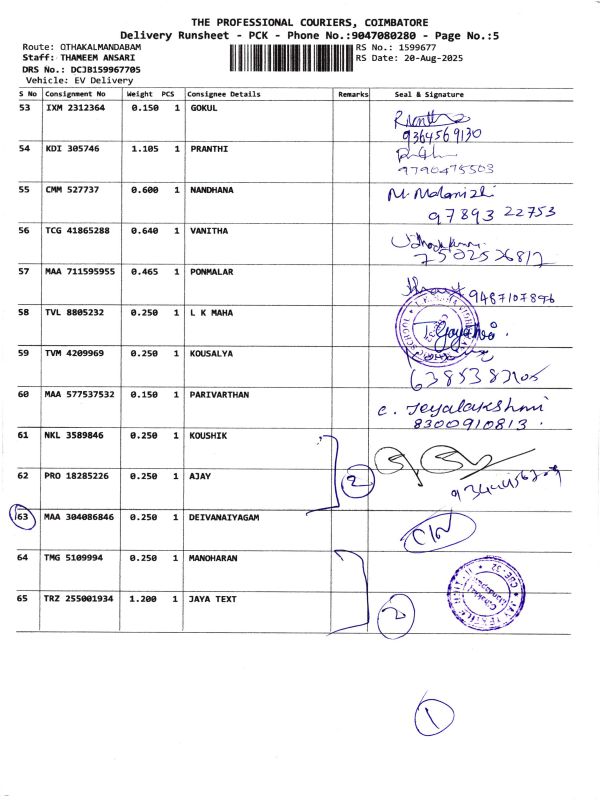 THE PROFESSIONAL COURIERS, COIMBATORE
Delivery Runsheet - PCK - Phone No.:9047080280 - Page No.:5
Route: OTHAKALMANDABAM
RS No.: 1599677
Staff: THAMEEM ANSARI
RS Date: 20-Aug-2025
DRS No.: DCJB159967705
Vehicle: EV Delivery
S No Consignment No Weight PCS Consignee Details Remarks Seal & Signature
53 IXM 2312364 0.150 1 GOKUL
9364569130
54 KDI 305746 1.105 1 PRANTHI
9790475503
55 CMM 527737 0.600 1 NANDHANA
97893 22753
56 TCG 41865288 0.640 1 VANITHA
7502526817
57 MAA 711595955 0.465 1 PONMALAR
9487107896
58 TVL 8805232 0.250 1 L K MAHA
59 TVM 4209969 0.250 1 KOUSALYA
60 MAA 577537532 0.150 1 PARIVARTHAN
C. Jeyalakshmi
8300910813.
61 NKL 3589846 0.250 1 KOUSHIK
62 PRO 18285226 0.250 1 AJAY
2
63 MAA 304086846 0.250 1 DEIVANAIYAGAM
64 TMG 5109994 0.250 1 MANOHARAN
65 TRZ 255001934 1.200 1 JAYA TEXT
2
1